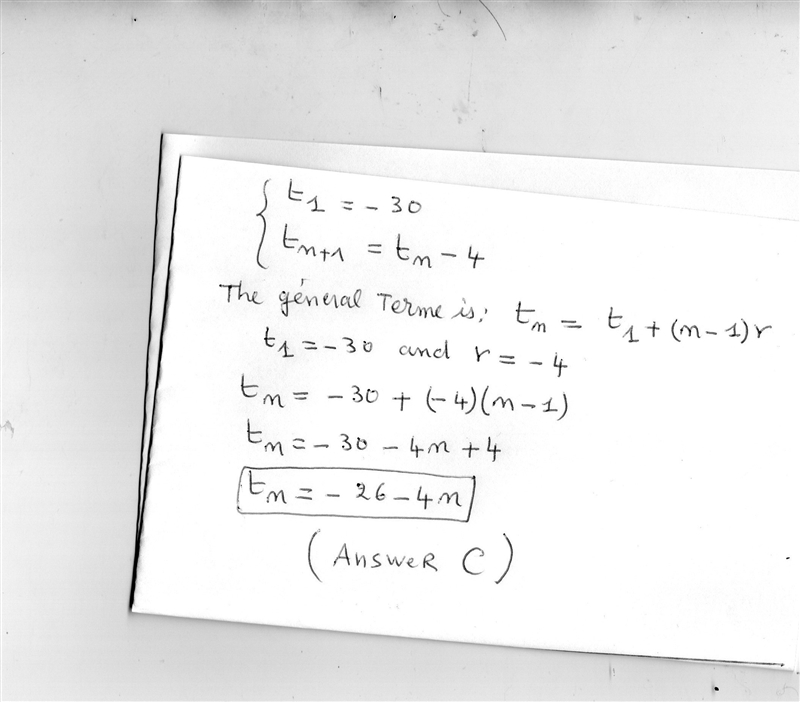 t₁ = - 30
tₙ₊₁ = tₙ - 4
The géneral Terme is: tₙ = t₁ + (n - 1)r
t₁ = - 30 and r = - 4
tₙ = - 30 + (-4)(n - 1)
tₙ = - 30 - 4n + 4
tₙ = - 26 - 4n
(Answer C)